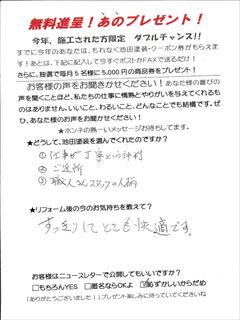 無料進呈！あのプレゼント！
今年、施工された方限定　ダブルチャンス!!
すでに今年のあなたは、もれなく池田塗装・クーポン券がもらえま
す！あとは、下記に記入して今すぐポストかFAXで送るだけ！
さらに、抽選で毎月5名様に5,000円の商品券をプレゼント！
お客様の声をお聞かせください！あなたの喜びの
声を聞くことほど、私たちの仕事に情熱とやりがいを与えてくれるも
のはありません。いいこと、わるいこと、どんなことでも結構です。ぜ
ひ、あなたのお声をお聞かせください！
★ホンネの熱〜いメッセージお待ちしてます。
★どうして、池田塗装を選んでくれたのですか？
①仕事が丁寧という評判
②ご近所
③職人さん、スタッフの人柄
★リフォーム後の今のお気持ちを教えて？
すっきりしてとても快適です。
お客様はニュースレターで公開してもいいですか？
□もちろんYES　□匿名ならOKよ　☑恥ずかしいからだめ
「ありがとうございました！」プレゼント楽しみに待っていてくださいね